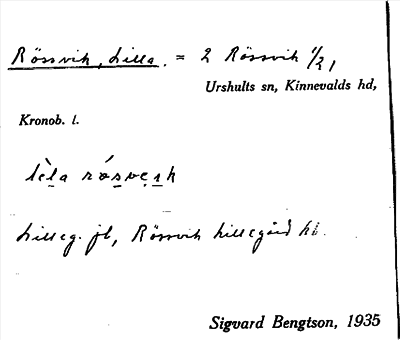 Rössvik, Lilla. = 2 Rössvik 1/2,
Urshults sn, Kinnevalds hd,
Kronob. l.
Lilleg. jb, Rössvik Lillegård kb.
Sigvard Bengtson, 1935